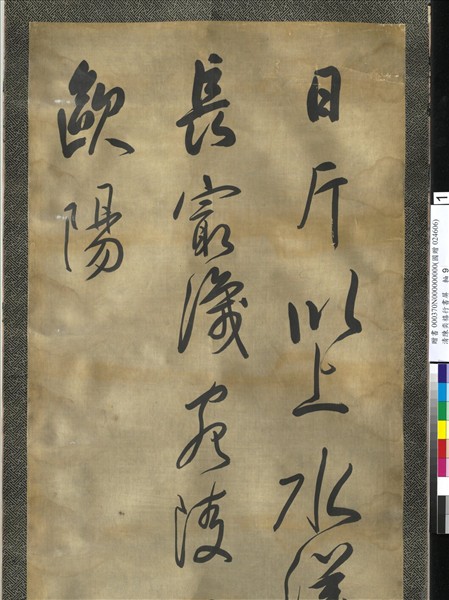 日斤以上水漢
長㝡宛陵
歐陽
1
贈書 000370N000000000(國贈 024606)
清陳奕禧行書屏 軸 9